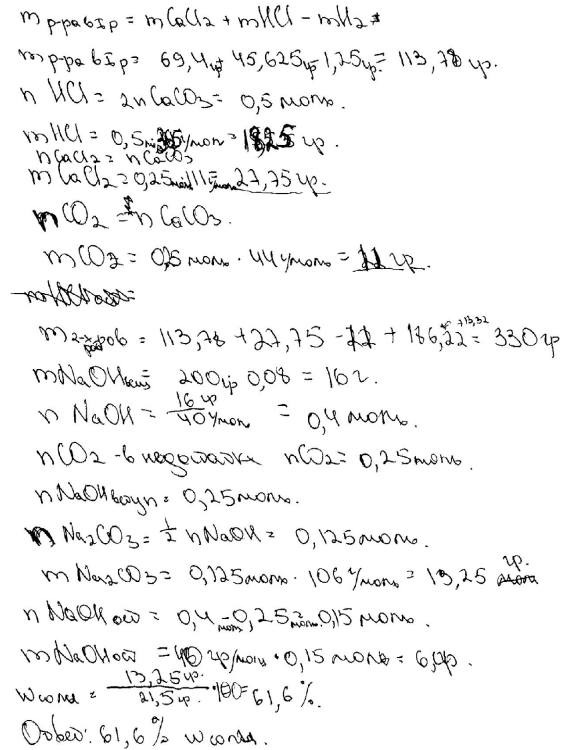 m р-ра в Iр = mCaCl2 + mHCl - mH2
m р-ра в Iр = 69,4гр + 45,625гр - 1,25гр = 113,78 гр.
n HCl = 2nCaCO3 = 0,5 моль.
mHCl = 0,5 моль г/моль = 18,25 гр.
nCaCl2 = nCaCO3
m CaCl2 = 0,25моль 111г/моль = 27,75 гр.
nCO2 = n CaCO3.
mCO2 = 0,25 моль · 44 г/моль = 11 гр.
m 2-х р-ров = 113,78 + 27,75 - 11 + 186,22 + 13,32 = 330гр
mNaOH = 200гр 0,08 = 16 г.
n NaOH = 16 гр / 40 г/моль = 0,4 моль.
nCO2 - в недостатке nCO2 = 0,25 моль.
n NaOH вступ = 0,25 моль.
n Na2CO3 = 1/2 n NaOH = 0,125 моль.
m Na2CO3 = 0,125 моль · 106 г/моль = 13,25 гр.
n NaOH ост = 0,4 моль - 0,25 моль = 0,15 моль.
m NaOH ост = 40 гр/моль · 0,15 моль = 6 гр.
W соли = 13,25 гр. / 21,5 гр · 100 = 61,6 %.
Ответ: 61,6 % W соли.